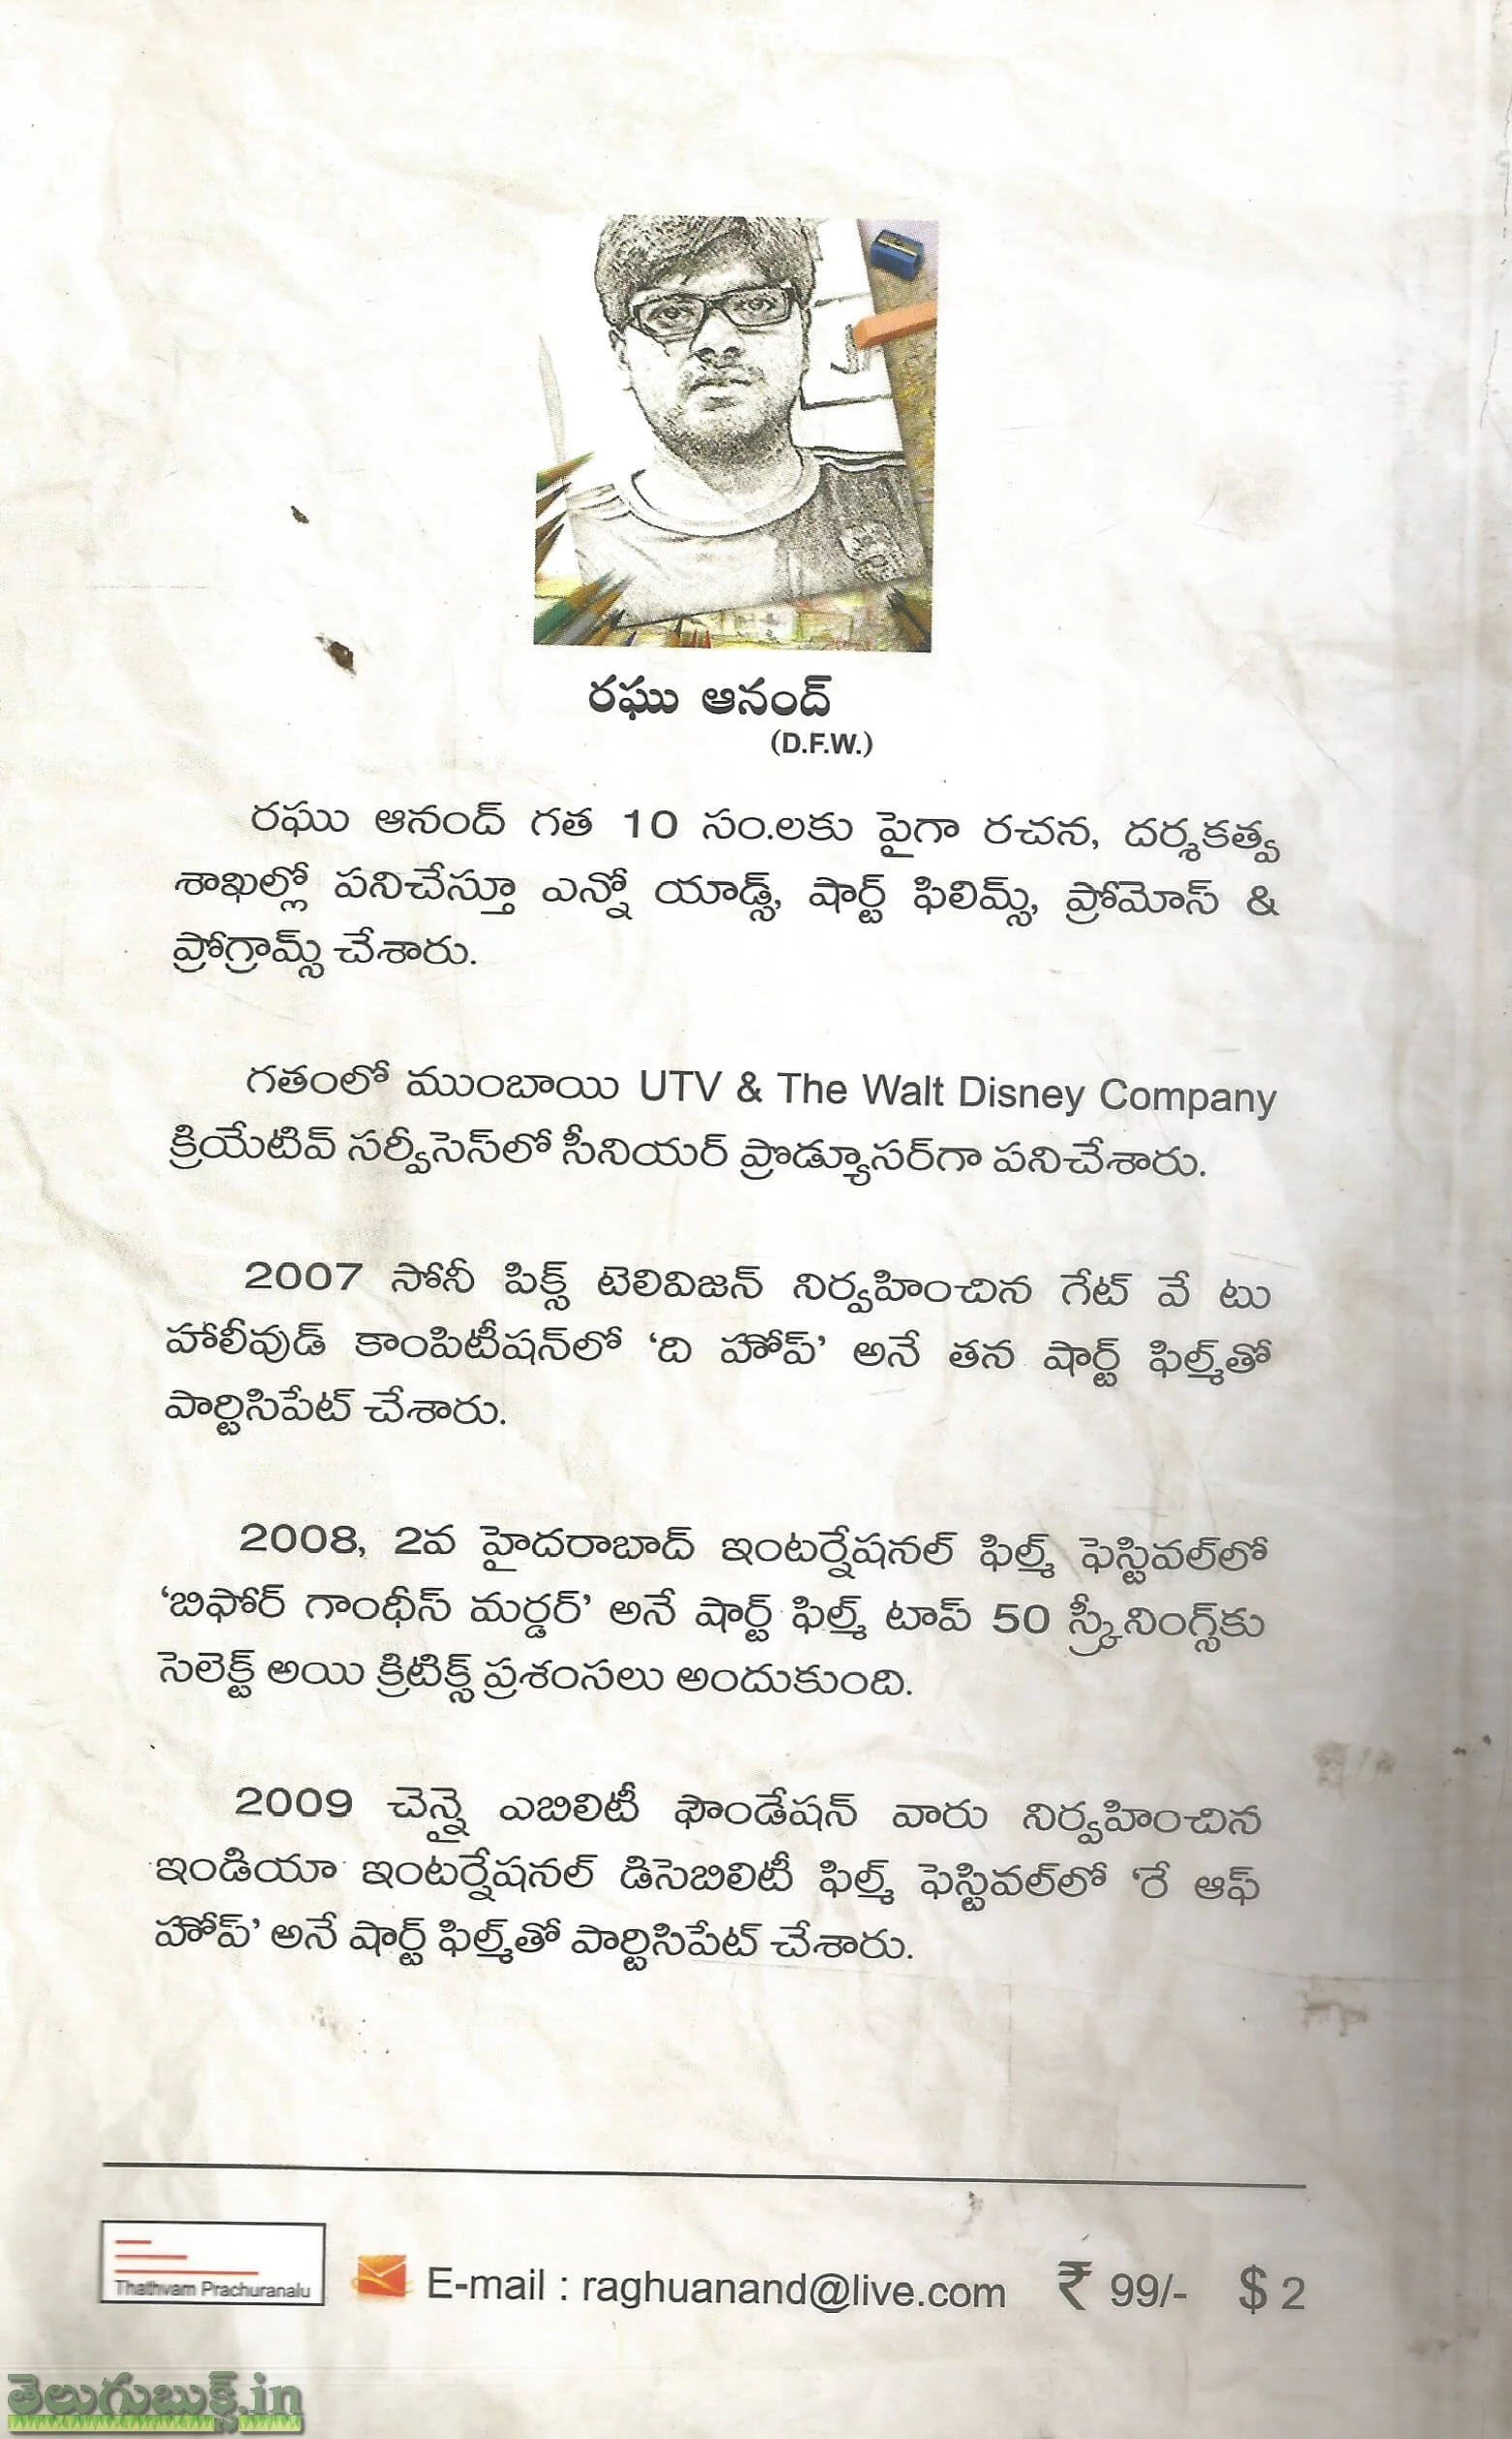 రఘు ఆనంద్
(D.F.W.)
రఘు ఆనంద్ గత 10 సం.లకు పైగా రచన, దర్శకత్వ
శాఖల్లో పనిచేస్తూ ఎన్నో యాడ్స్, షార్ట్ ఫిలిమ్స్, ప్రోమోస్ &
ప్రోగ్రామ్స్ చేశారు.
గతంలో ముంబాయి UTV & The Walt Disney Company
క్రియేటివ్ సర్వీసెస్‌లో సీనియర్ ప్రొడ్యూసర్‌గా పనిచేశారు.
2007 సోనీ పిక్స్ టెలివిజన్ నిర్వహించిన గేట్ వే టు
హాలీవుడ్ కాంపిటీషన్‌లో ‘ది హోప్’ అనే తన షార్ట్ ఫిల్మ్‌తో
పార్టిసిపేట్ చేశారు.
2008, 2వ హైదరాబాద్ ఇంటర్నేషనల్ ఫిల్మ్ ఫెస్టివల్‌లో
‘బిఫోర్ గాంధీస్ మర్డర్’ అనే షార్ట్ ఫిల్మ్ టాప్ 50 స్క్రీనింగ్స్‌కు
సెలెక్ట్ అయి క్రిటిక్స్ ప్రశంసలు అందుకుంది.
2009 చెన్నై ఎబిలిటీ ఫౌండేషన్ వారు నిర్వహించిన
ఇండియా ఇంటర్నేషనల్ డిసెబిలిటీ ఫిల్మ్ ఫెస్టివల్‌లో ‘రే ఆఫ్
హోప్’ అనే షార్ట్ ఫిల్మ్‌తో పార్టిసిపేట్ చేశారు.
Thathvam Prachuranalu
E-mail : raghuanand@live.com ₹ 99/- $ 2
తెలుగుబుక్స్.in